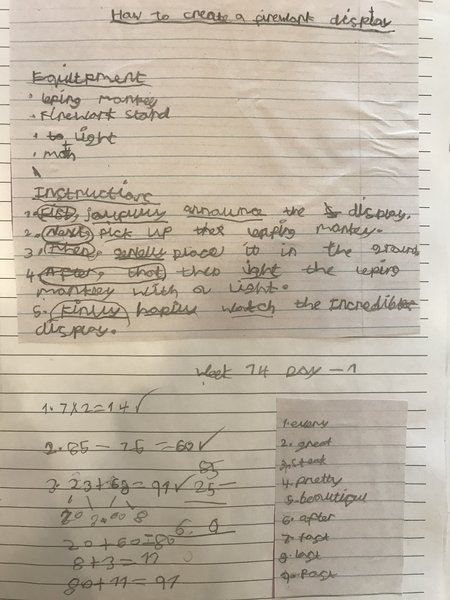 How to create a firework display
Equiltpment
• leping mankey
• Firework stand
• to light
• math
Instructions
1. First, joyfully announce the display.
2. Next, Pick up that lepping mankey.
3. Then, safely place it in the ground
4. After, that then light the leping
mankey with a light.
5. Finlly hapily watch the Incredible
display.
Week 14 Day - 1
1. 7x2=14 ✓
2. 85 - 25 = 60 ✓
3. 23+68 = 91 ✓
85
25 -
6 0
20 3 60 8
20+60=80
8+3=11
80+11=91
1. every
2. great
3. steak
4. pretty
5. beautiful
6. after
7. fast
8. last
9. Past